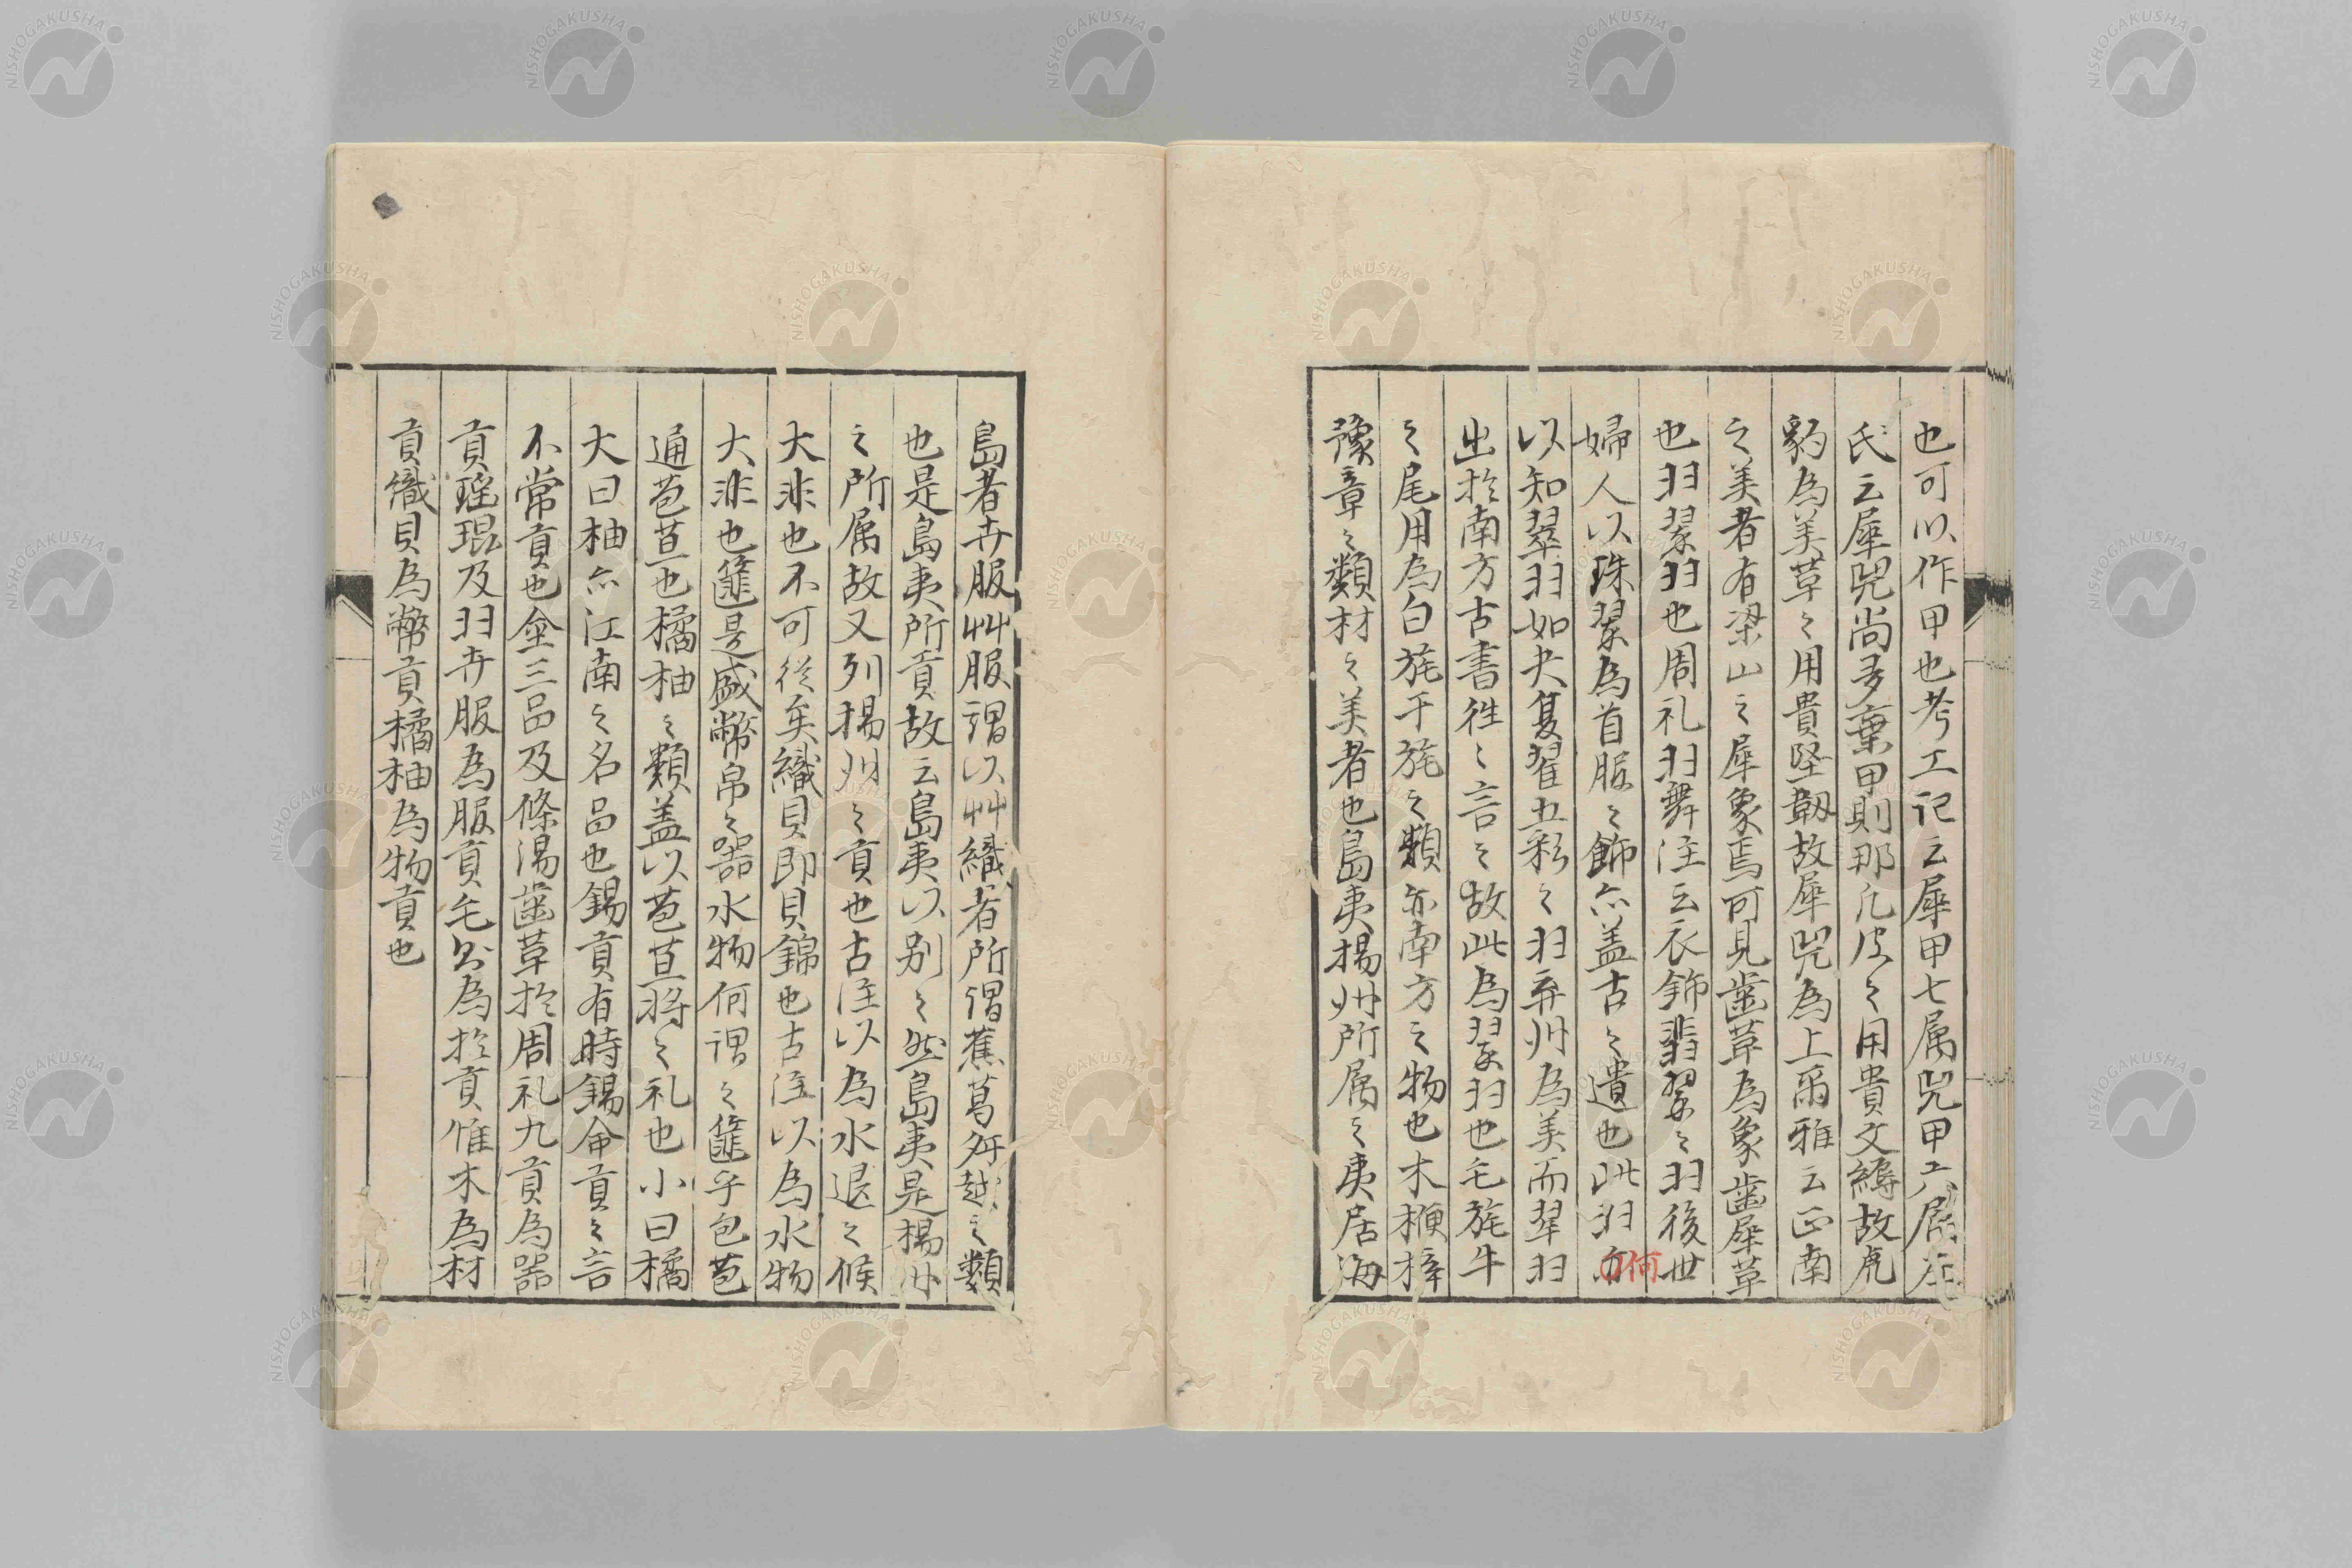 也可以作甲也考工记云犀甲七属兕甲六属左
氏云犀兕尚多棄甲則那凡皮之用貴文縟故虎
豹為美革之用貴堅韌故犀兕為上爾雅云正南
之美者有梁山之犀象焉可見齒革為象齒犀革
也羽翠羽也周礼羽舞注云衣飾翡翠之羽後世
婦人以珠翠為首服之飾亦盖古之遺也此羽亦何
以知翠羽如夫夏翟五彩之羽弃州為美而翠羽
出於南方古書徃〻言之故此為翠羽也毛旄牛
之尾用為白旄干旄之類亦南方之物也木楩梓
豫章之類材之美者也島夷楊州所属之夷居海
島者卉服艸服謂以艸織者所謂蕉葛升越之類
也是島夷所貢故云島夷以别之然島夷是楊州
之所属故又列揚州之貢也古注以為水退之候
大非也不可從矣織貝即貝錦也古注以為水物
大非也篚是盛幣帛之器水物何謂之篚乎包苞
通苞苴也橘柚之類盖以苞苴将之礼也小曰橘
大曰柚亦江南之名品也錫貢有時錫命貢之言
不常貢也金三品及篠湯齒革於周礼九貢為器
貢瑤琨及羽卉服為服貢毛
為於貢惟木為材
貢織貝為幣貢橘柚為物貢也
NISHOGAKUSHA